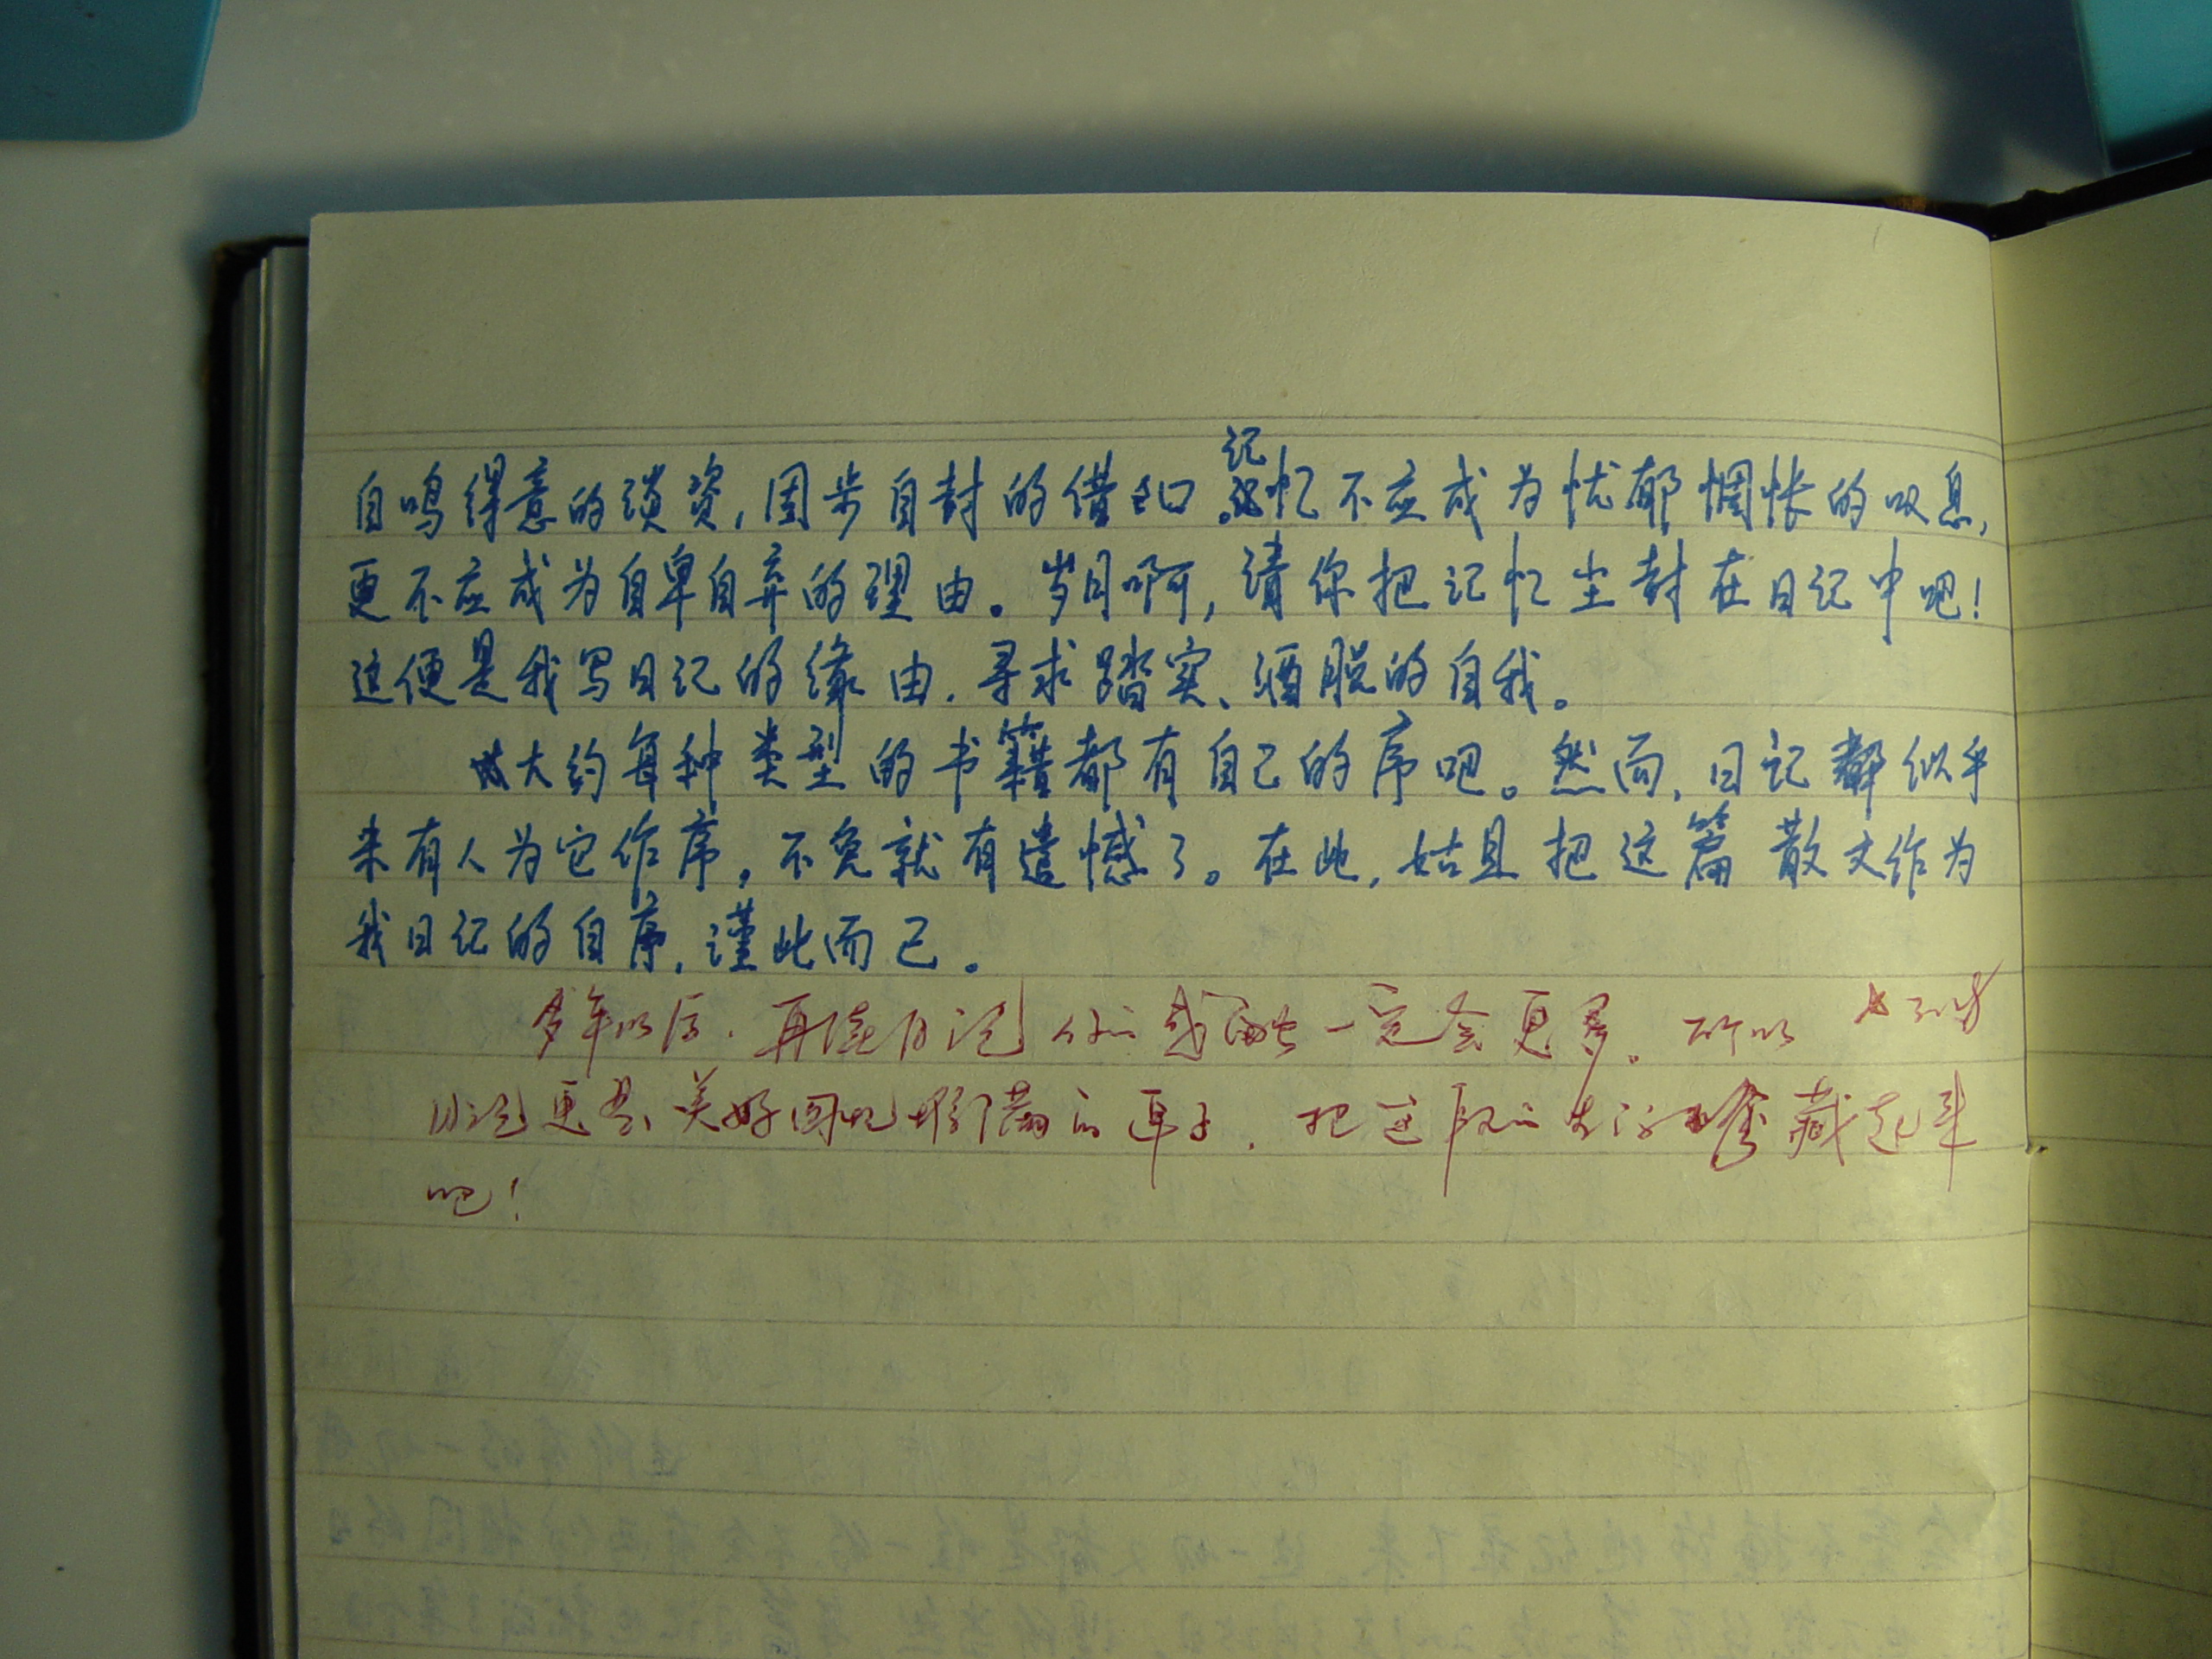 自鸣得意的资,固步自封的借口。记忆不应成为忧郁惆怅的叹息,
更不应成为自卑自弃的理由。岁月啊,请你把记忆尘封在日记中吧!
这便是我写日记的缘由,寻求踏实、洒脱的自我。
大约每种类型的书籍都有自己的序吧。然而,日记似乎
未有人为它作序,不免就有遗憾了。在此,姑且把这篇散文作为
我日记的自序,谨此而已。
多年以后,再读日记你的感触一定会更多。所以
日记更是美好回忆的匣子,把这段的生活珍藏起来
吧!